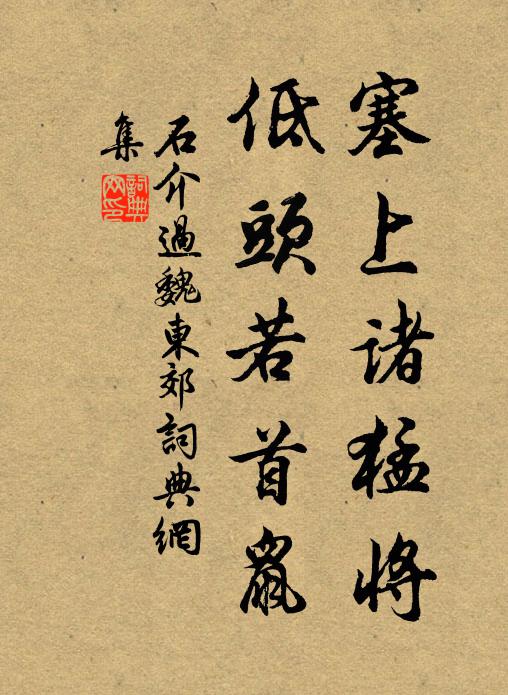 塞上诸猛將
低頭若首鼠
石介過魏東郊詞典網
集
詞典網印